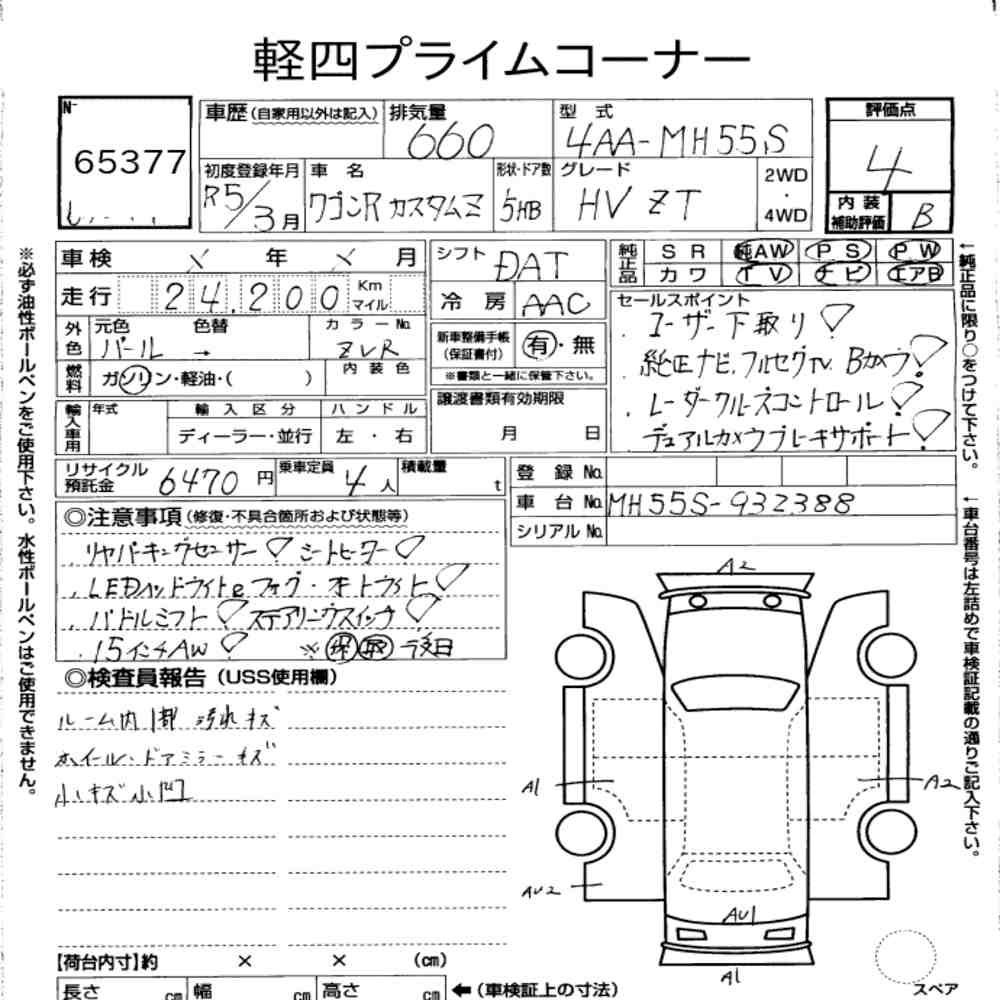 軽四プライムコーナー
No
65377
車歴(自家用以外は記入) 排気量 型式 評価点
660 4AA-MH55S 4
初度登録年月 車名 形状・ドア数 グレード 2WD・4WD
R5/3月 ワゴンR カスタムZ 5HB HV ZT
内装補助評価 B
車検 年 月
走行 24,200 Km マイル
シフト DAT
冷房 AAC
純正品 SR 純AW PS PW
カワ TV ナビ エアB
外色 元色 色替 カラーNo.
パール → ZVR
燃料 ガソリン・軽油・( ) 内装色
新車整備手帳(保証書付) 有・無
※書類と一緒に保管下さい。
セールスポイント
・ユーザー下取り!
・純正ナビ.フルセグTV. Bカメラ!
・レーダークルーズコントロール!
・デュアルカメラブレーキサポート!
輸入車用 年式 輸入区分 ハンドル
ディーラー・並行 左・右
譲渡書類有効期限
月 日
リサイクル預託金 6470円 乗車定員 4人 積載量 t
登録No.
車台No. MH55S-932388
シリアルNo.
◎注意事項(修復・不具合箇所および状態等)
・リヤパーキングセンサー! シートヒーター!
・LEDヘッドライト&フォグ・オートライト!
・パドルシフト! ステアリングスイッチ!
・15インチAW! ※ 保 取 後日
◎検査員報告(USS使用欄)
ルーム内 1部 汚れ キズ
ホイール・ドアミラー キズ
小キズ小凹
A2
A1
A2
AU2
AU1
A1
【荷台内寸】約 × × (cm)
長さ cm 幅 cm 高さ cm ←(車検証上の寸法)
スペア
※必ず油性ボールペンをご使用下さい。水性ボールペンはご使用できません。
←純正品に限り○をつけて下さい。
←車台番号は左詰めで車検証記載の通りご記入下さい。